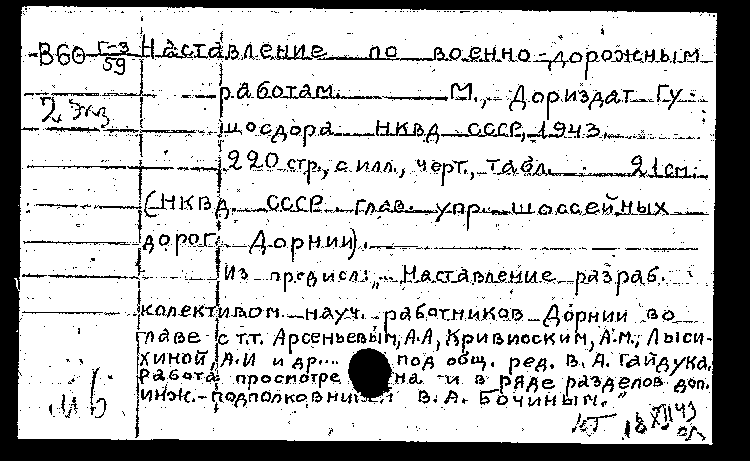 В60 г-з/59 Наставление по военно-дорожным
работам. М., Дориздат Гу-
2 экз
шосдора НКВД СССР, 1943.
220 стр., с илл., черт., табл. 21 см.
(НКВД СССР глав. упр. шоссейных
дорог Дорнии).
Из предисл: „Наставление разраб.
колективом науч. работников Дорнии во
главе с т.т. Арсеньевым, А.А, Кривиоским, А.М., Лыси-
хиной, А.И и др... под общ. ред. В. А. Гайдука.
Работа просмотре на и в ряде разделов доп.
инж.-подполковник В. А. Бочиным."
18 XII 43